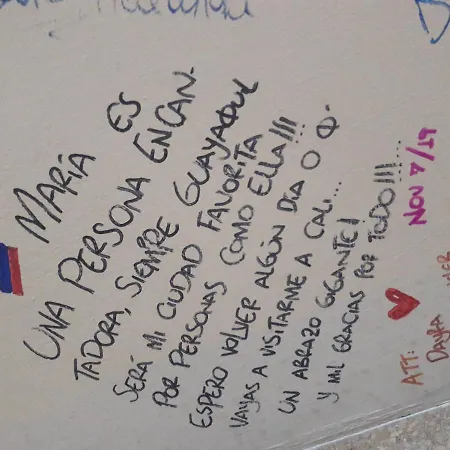 MARIA ES
UNA PERSONA ENCAN-
TADORA, SIEMPRE GUAYAQUIL
SERÁ MI CIUDAD FAVORITA
POR PERSONAS COMO ELLA!!!
ESPERO VOLVER ALGÚN DÍA O Q-
VAYAS A VISITARME A CALI...
UN ABRAZO GIGANTE!
Y MIL GRACIAS POR TODO!!!...
NOV 7/19
ATT: